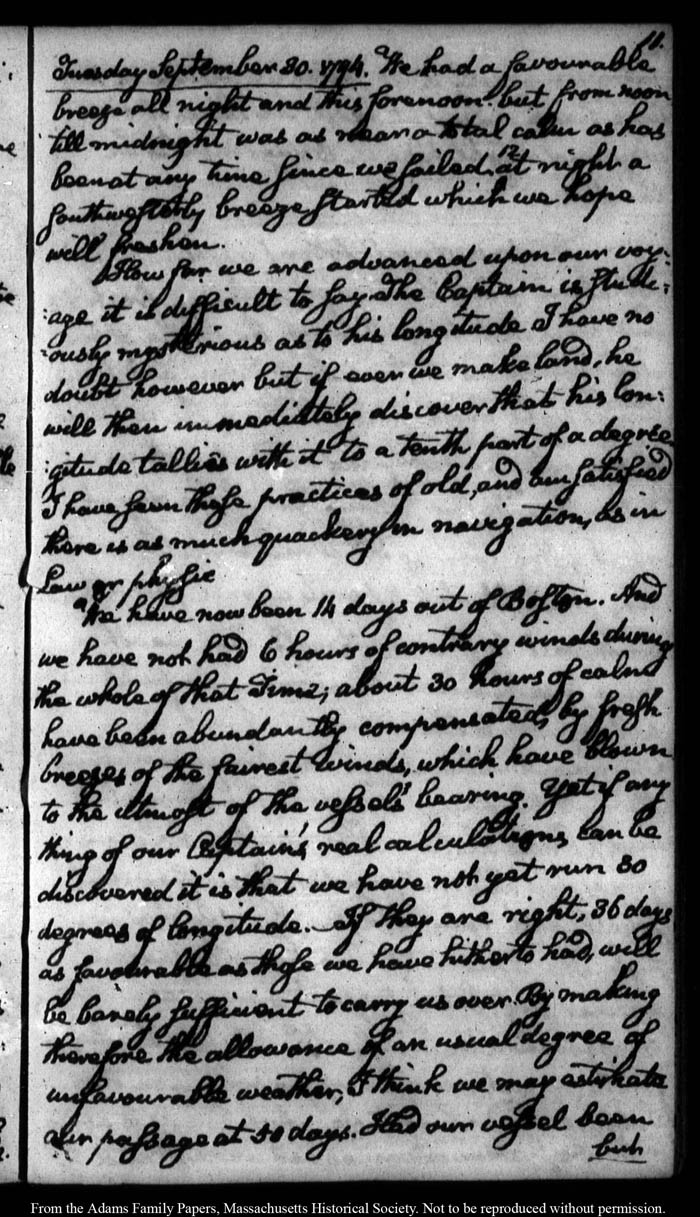 11.
Tuesday September 30. 1794. We had a favourable
breeze all night and this forenoon. but from noon
till midnight was as near a total calm as has
been at any time since we sailed. at 12 at night a
southwesterly breeze started which we hope
will freshen.
How far we are advanced upon our voy:
:age it is difficult to say. The Captain is studi:
:ously mysterious as to his longitude I have no
doubt however but if ever we make land, he
will then immediately discover that his lon:
:gitude tallies with it to a tenth part of a degree
I have seen these practices of old, and am satisfied
there is as much quackery in navigation, as in
Law or physic
We have now been 14 days out of Boston. And
we have not had 6 hours of contrary winds during
the whole of that Time; about 30 hours of calm
have been abundantly compensated, by fresh
breezes of the fairest winds, which have blown
to the utmost of the vessels' bearing. Yet if any
thing of our Captain's real calculations, can be
discovered it is that we have not yet run 30
degrees of longitude. If they are right, 36 days
as favourable as those we have hitherto had, will
be barely sufficient to carry us over. By making
therefore the allowance of an usual degree of
unfavourable weather, I think we may estimate
our passage at 50 days. Had our vessel been
but
From the Adams Family Papers, Massachusetts Historical Society. Not to be reproduced without permission.